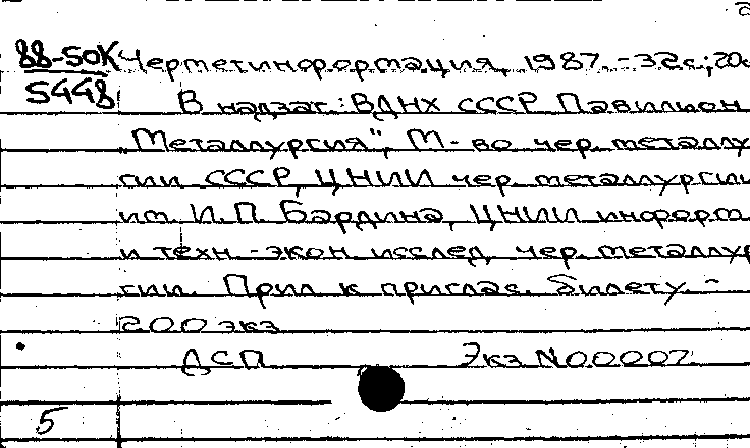 88-50К Черметинформация, 1987. - 32с.; 20с
5448 В надзаг.: ВДНХ СССР Павильон
"Металлургия", М-во чер. металлур
гии СССР, ЦНИИ чер. металлургии
им. И.П. Бардина, ЦНИИ информ.
и техн.-экон. исслед. чер. металлур
гии. Прил. к приглас. билету. -
200 экз.
ДСП Экз N00007
5